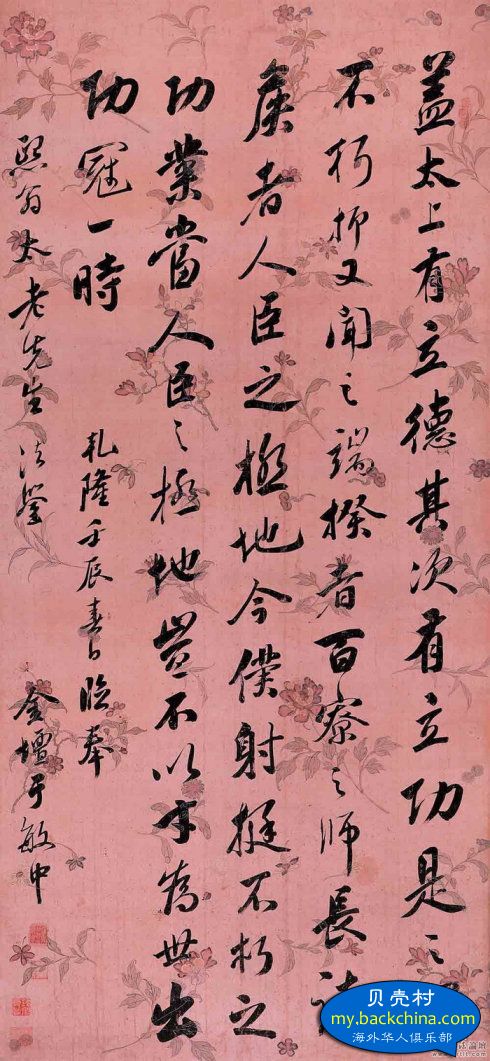 蓋太上有立德其次有立功是之
不朽抑又聞之端揆者百寮之師長
矦者人臣之極地今僕射挺不朽之
功業當人臣之極地豈不以才為世出
功冠一時
乹隆壬辰春日臨奉
熙翁太老先生法鑒
金壇于敏中
贝壳村
my.backchina.com
海外华人俱乐部